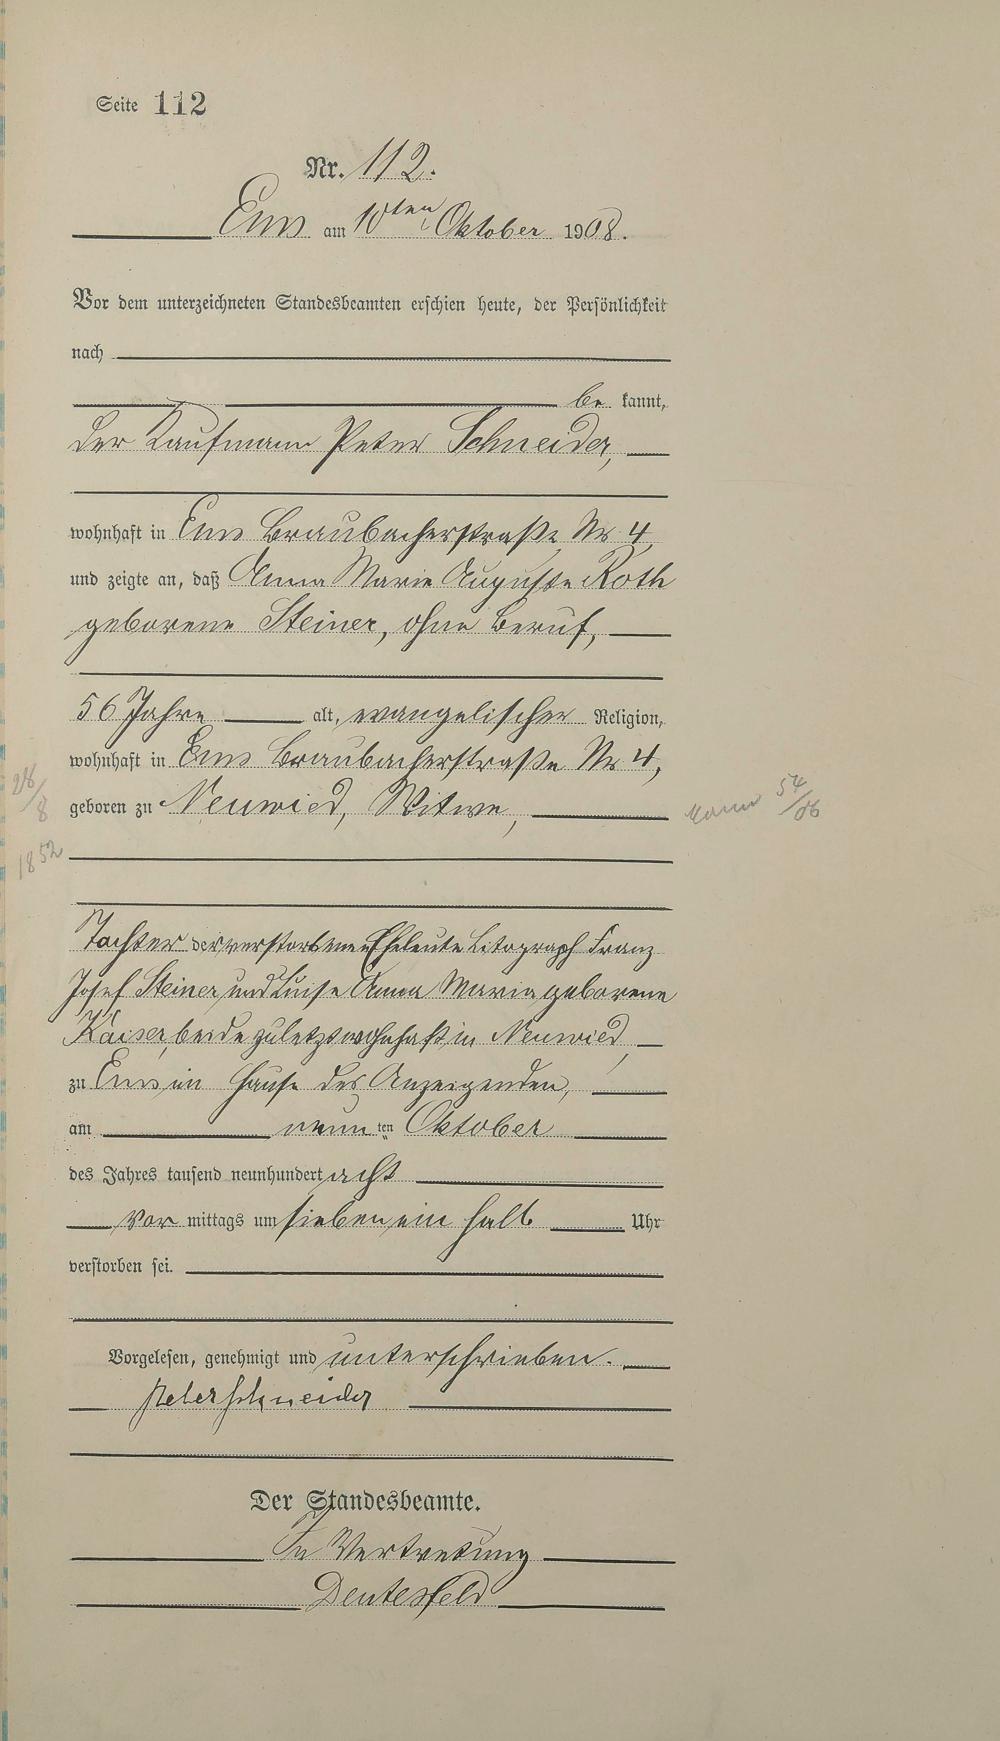 Seite 112
Nr. 112.
Ems am 10ten Oktober 1908.
Vor dem unterzeichneten Standesbeamten erschien heute, der Persönlichkeit
nach
be kannt,
der Kaufmann Peter Schneider,
wohnhaft in Ems Braubacherstraße Nr 4
und zeigte an, daß Anna Marie Auguste Roth
geborene Steiner, ohne Beruf,
56 Jahre alt, evangelischer Religion,
wohnhaft in Ems Braubacherstraße Nr 4,
28/8
geboren zu Neuwied, Witwe,
Mann 54/06
1852
Tochter der verstorbenen Eheleute Litograph Franz
Josef Steiner und Luise Anna Maria geborene
Kaiser, beide zuletzt wohnhaft in Neuwied,
zu Ems im Hause des Anzeigenden,
am neun ten Oktober
des Jahres tausend neunhundert acht
vor mittags um sieben ein halb Uhr
verstorben sei.
Vorgelesen, genehmigt und unterschrieben.
Peter Schneider
Der Standesbeamte.
In Vertretung
Deutesfeld